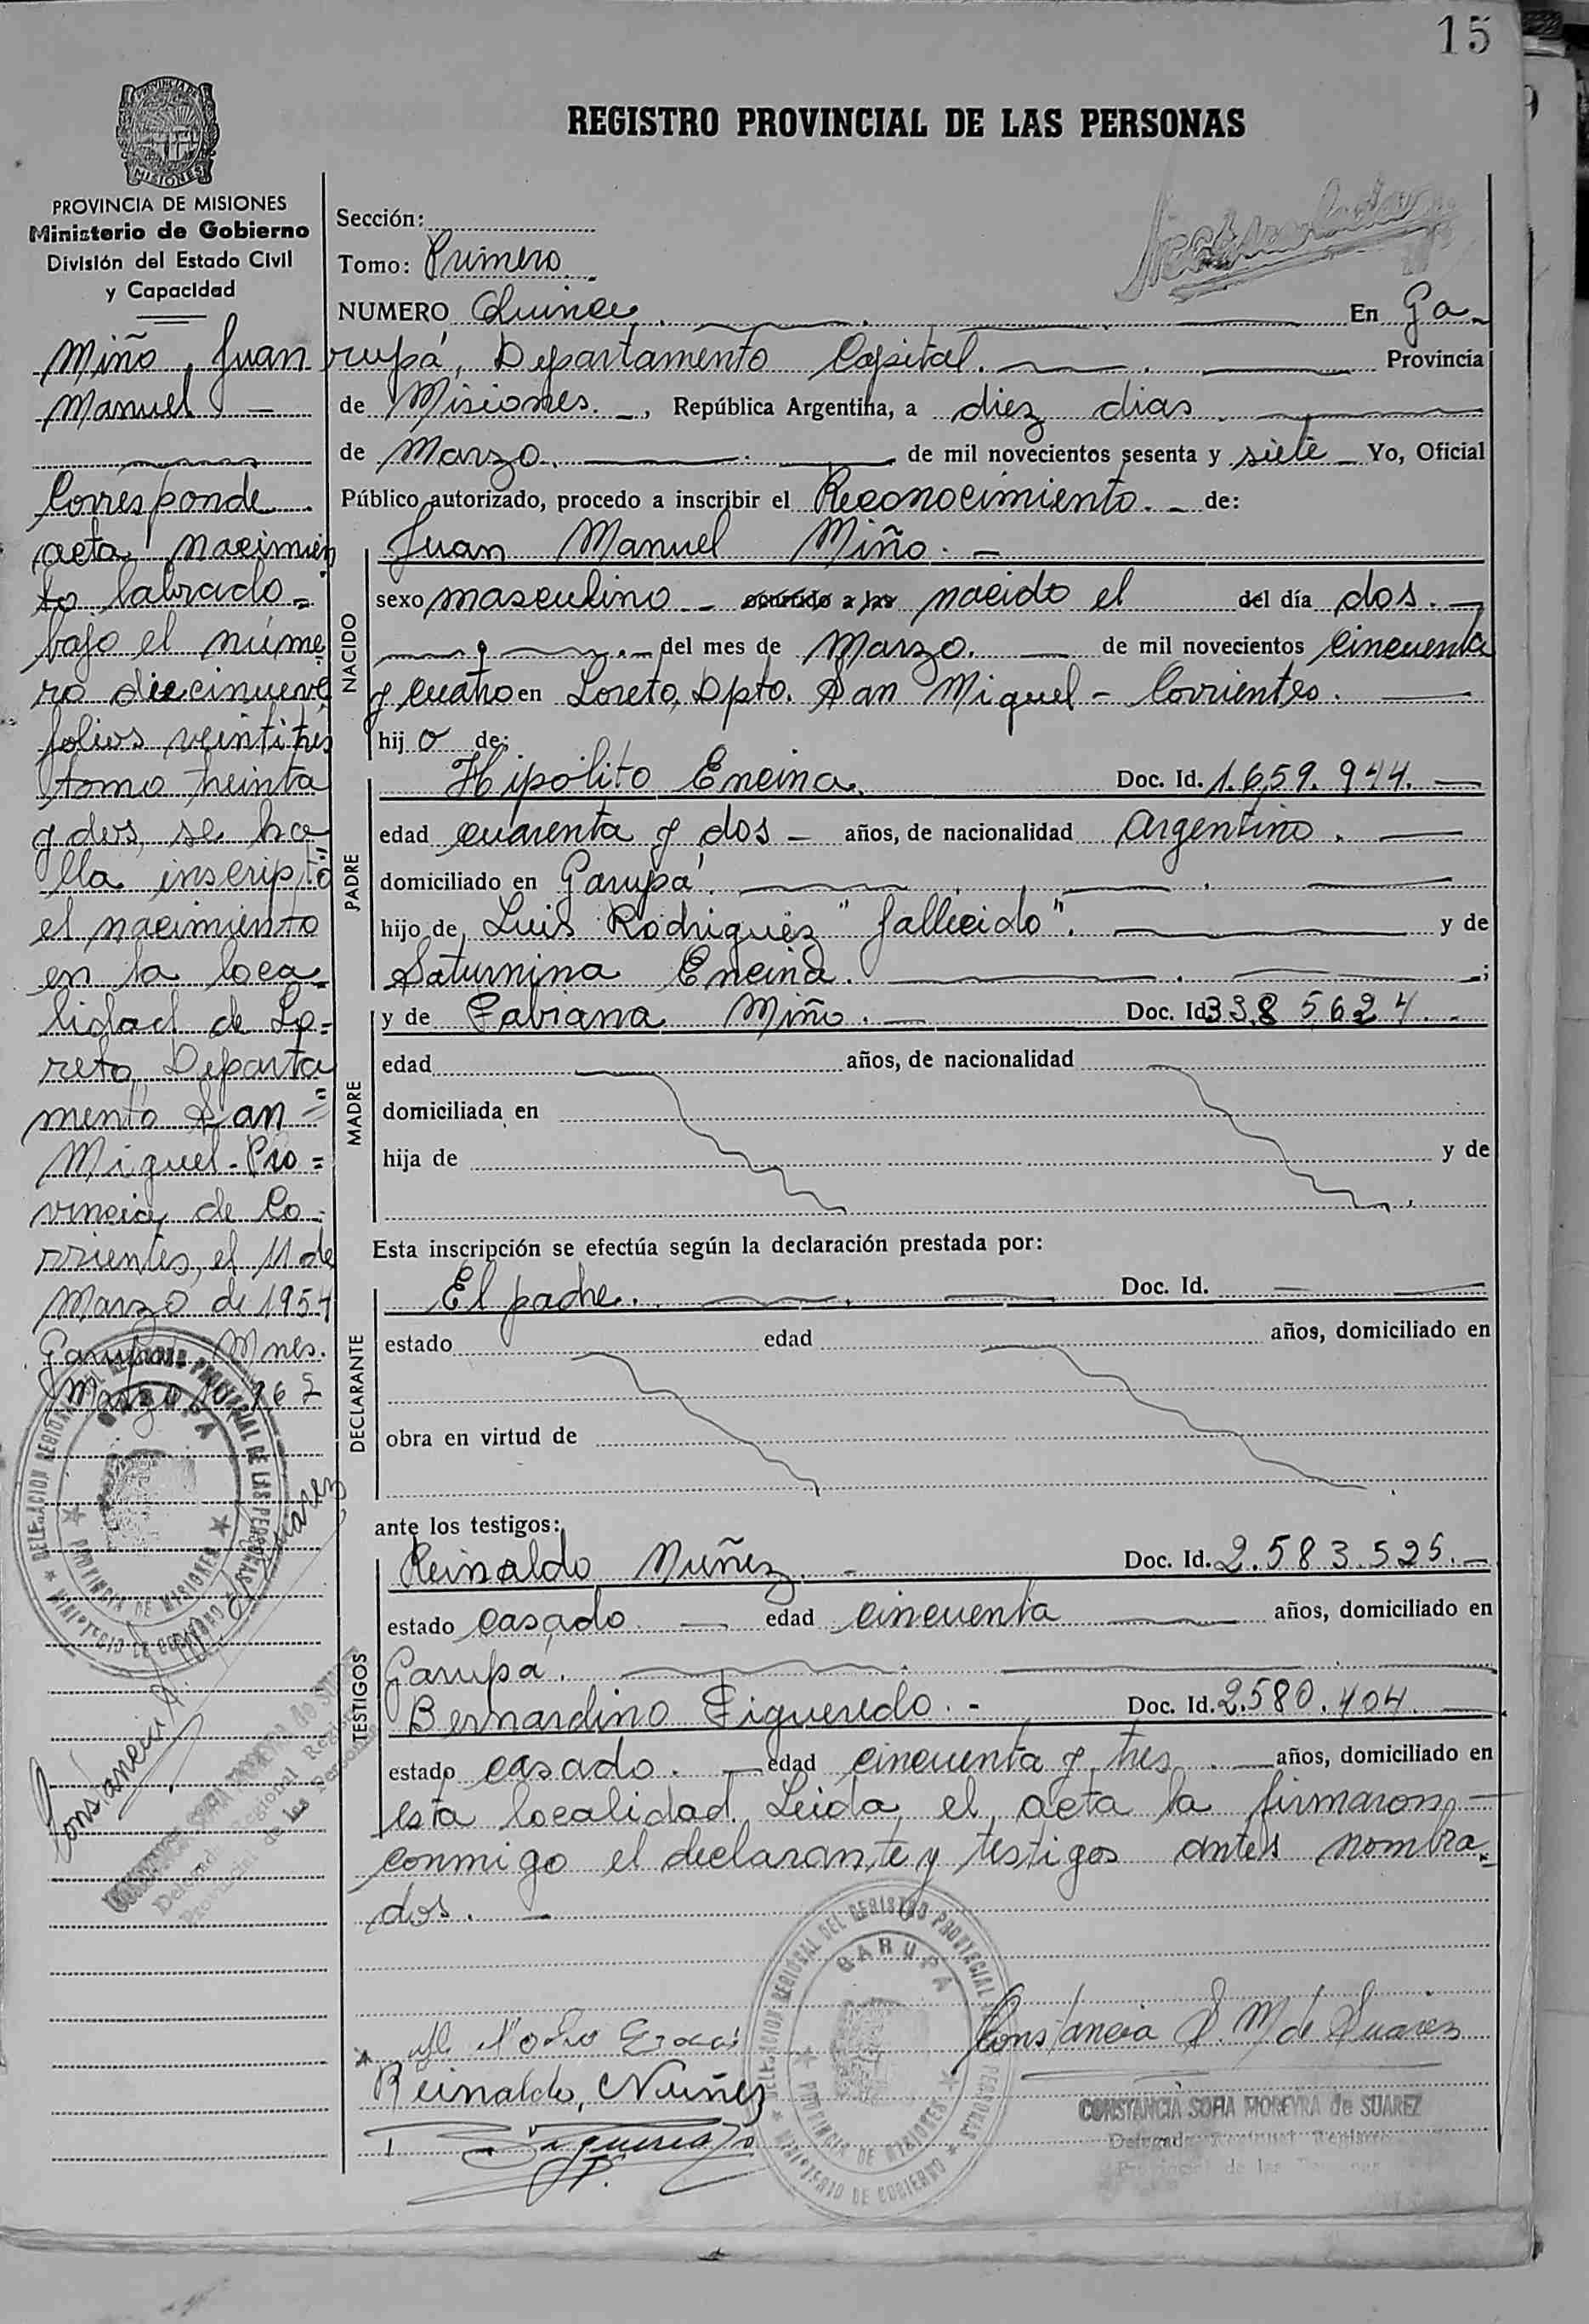 15
REGISTRO PROVINCIAL DE LAS PERSONAS
PROVINCIA DE MISIONES
Ministerio de Gobierno
División del Estado Civil
y Capacidad
Miño, Juan
Manuel
Corresponde
acta nacimien
to labrado
bajo el núme
ro diecinueve
folios veintitrés
tomo treinta
y dos, se ha
lla inscripto
el nacimiento
en la loca-
lidad de Lo=
reto Departa
mento San =
Miguel - Pro =
vincia de Co-
rrientes, el 11 de
Marzo de 1954
Garupá Mnes.
Marzo 10
Sección:
Tomo: Primero
NUMERO Quince En Ga-
rupá, Departamento Capital. Provincia
de Misiones. -, República Argentina, a diez dias
de Marzo. de mil novecientos sesenta y siete - Yo, Oficial
Público autorizado, procedo a inscribir el Reconocimiento. - de:
NACIDO
Juan Manuel Miño. -
sexo masculino - ocurrido a las nacido el del día dos. -
del mes de Marzo. de mil novecientos cincuenta
y cuatro en Loreto, Dpto. San Miguel - Corrientes.
hijo de:
PADRE
Hipólito Encina. Doc. Id. 1.659.944.
edad cuarenta y dos - años, de nacionalidad Argentino.
domiciliado en Garupá.
hijo de Luis Rodriguez "fallecido". y de
Saturnina Encina. ;
MADRE
y de Fabiana Miño. - Doc. Id. 3385624. -
edad años, de nacionalidad
domiciliada en
hija de y de
Esta inscripción se efectúa según la declaración prestada por:
DECLARANTE
El padre. Doc. Id.
estado edad años, domiciliado en
obra en virtud de
ante los testigos:
TESTIGOS
Reinaldo Nuñez. - Doc. Id. 2.583.525. -
estado casado - edad cincuenta años, domiciliado en
Garupá.
Bernardino Figueredo. - Doc. Id. 2.580.404.
estado casado. - edad cincuenta y tres. años, domiciliado en
esta localidad. Leida el acta la firmaron
conmigo el declarante y testigos antes nombra-
dos. -
DELEGACION REGIONAL DEL REGISTRO PROVINCIAL DE LAS PERSONAS
GARUPA
PROVINCIA DE MISIONES
MINISTERIO DE GOBIERNO
Constancia S. M de Suarez
Reinaldo, Nuñez
CONSTANCIA SOFIA MOREYRA de SUAREZ